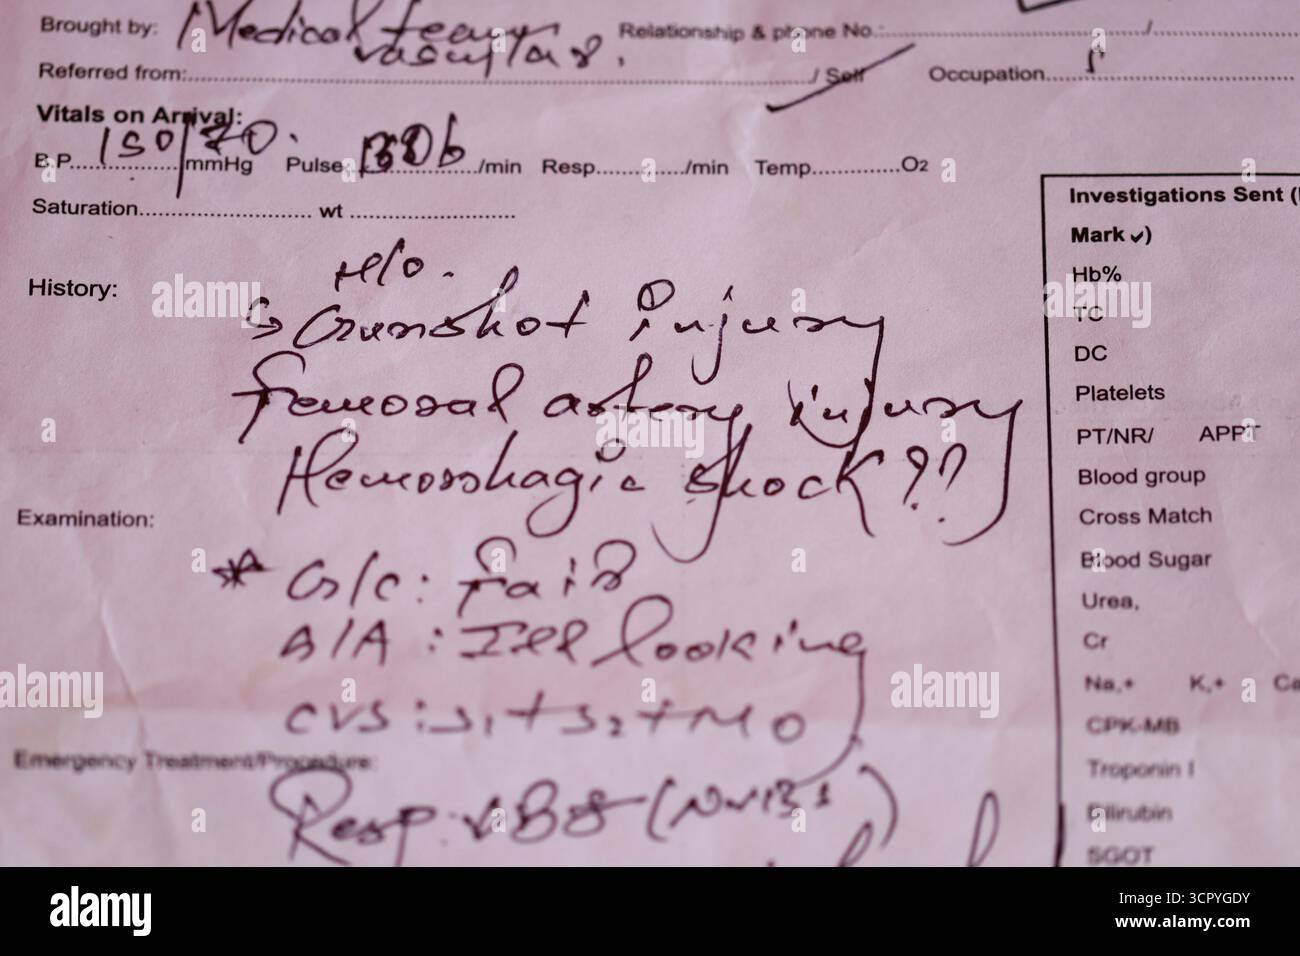 Brought by: Medical team Relationship & phone No.:............/............
vascular.
Referred from:............/ Self Occupation............
Vitals on Arrival:
B.P. 150/70 mmHg Pulse: /min Resp............/min Temp............O2
Saturation............ wt ............
Investigations Sent (
Mark ✓)
Hb%
TC
DC
Platelets
PT/NR/ APPT
Blood group
Cross Match
Blood Sugar
Urea,
Cr
Na,+ K,+ Ca
CPK-MB
Troponin I
Bilirubin
SGOT
History: H/o.
Gunshot injury
Femoral artery injury
Hemorrhagic shock??
Examination:
* G/C: Fair
A/A: Ill looking
CVS: S1+S2+M0
Emergency Treatment/Procedure:
Resp:
alamy
Image ID: 3CPYGDY
www.alamy.com